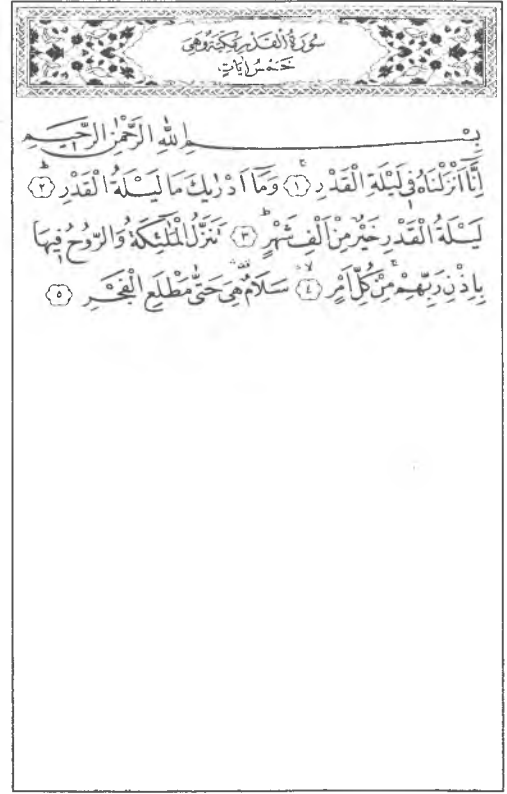 سُورَةُ الْقَدْرِ مَكِّيَّةٌ وَهِيَ
خَمْسُ اٰيَاتٍ
بِسْمِ اللّٰهِ الرَّحْمٰنِ الرَّحِيمِ
اِنَّٓا اَنْزَلْنَاهُ فِي لَيْلَةِ الْقَدْرِ ﴿١﴾ وَمَٓا اَدْرٰيكَ مَا لَيْلَةُ الْقَدْرِ ﴿٢﴾
لَيْلَةُ الْقَدْرِ خَيْرٌ مِنْ اَلْفِ شَهْرٍ ﴿٣﴾ تَنَزَّلُ الْمَلٰٓئِكَةُ وَالرُّوحُ فِيهَا
بِاِذْنِ رَبِّهِمْ مِنْ كُلِّ اَمْرٍ ﴿٤﴾ سَلَامٌ هِيَ حَتّٰى مَطْلَعِ الْفَجْرِ ﴿٥﴾